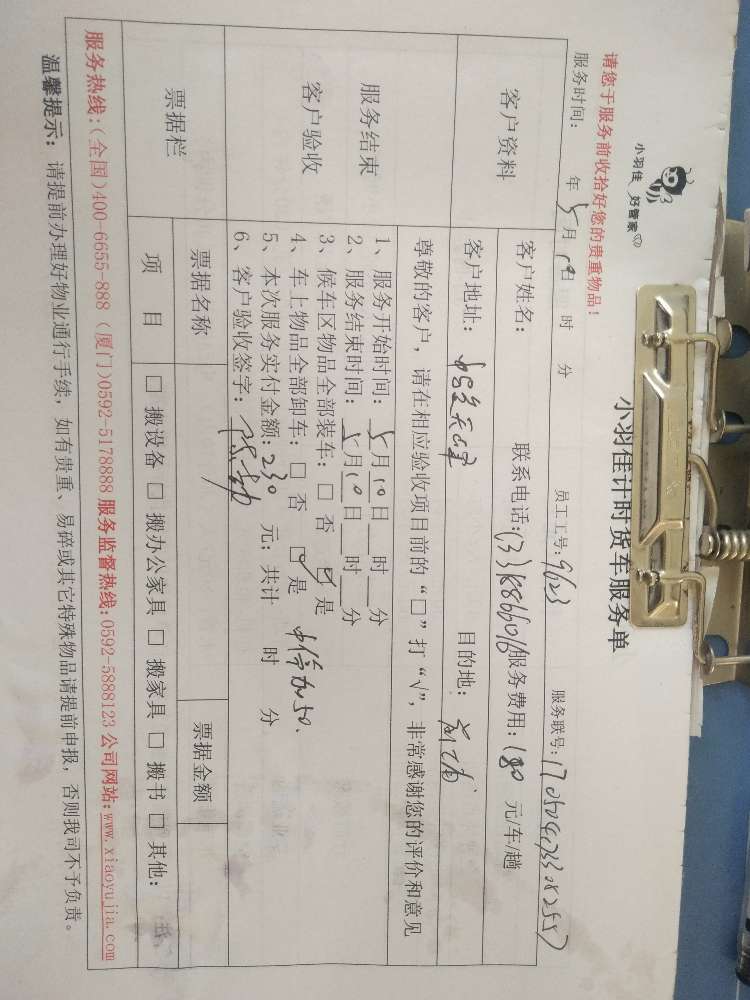 小羽佳 好管家
小羽佳计时货车服务单
请您于服务前收拾好您的贵重物品！
服务时间： 年 5月10日 时 分 员工工号：9623 服务联号：
客户资料
客户姓名： 联系电话： 服务费用：180 元/车/趟
客户地址： 目的地：
尊敬的客户，请在相应验收项目前的“□”打“√”，非常感谢您的评价和意见
服务结束
客户验收
1、服务开始时间：5月10日__时__分
2、服务结束时间：5月10日__时__分
3、候车区物品全部装车：□ 否 ☑是
4、车上物品全部卸车：□ 否 ☑是 中停加50.
5、本次服务实付金额：230 元；共计 时 分
6、客户验收签字：
票据栏
票据名称 票据金额
项 目 □ 搬设备 □ 搬办公家具 □ 搬家具 □ 搬书 □ 其他：
服务热线：(全国)400-6655-888 (厦门)0592-5178888 服务监督热线：0592-5888123 公司网站：www.xiaoyujia.com
温馨提示：请提前办理好物业通行手续，如有贵重、易碎或其它特殊物品请提前申报，否则我司不予负责。